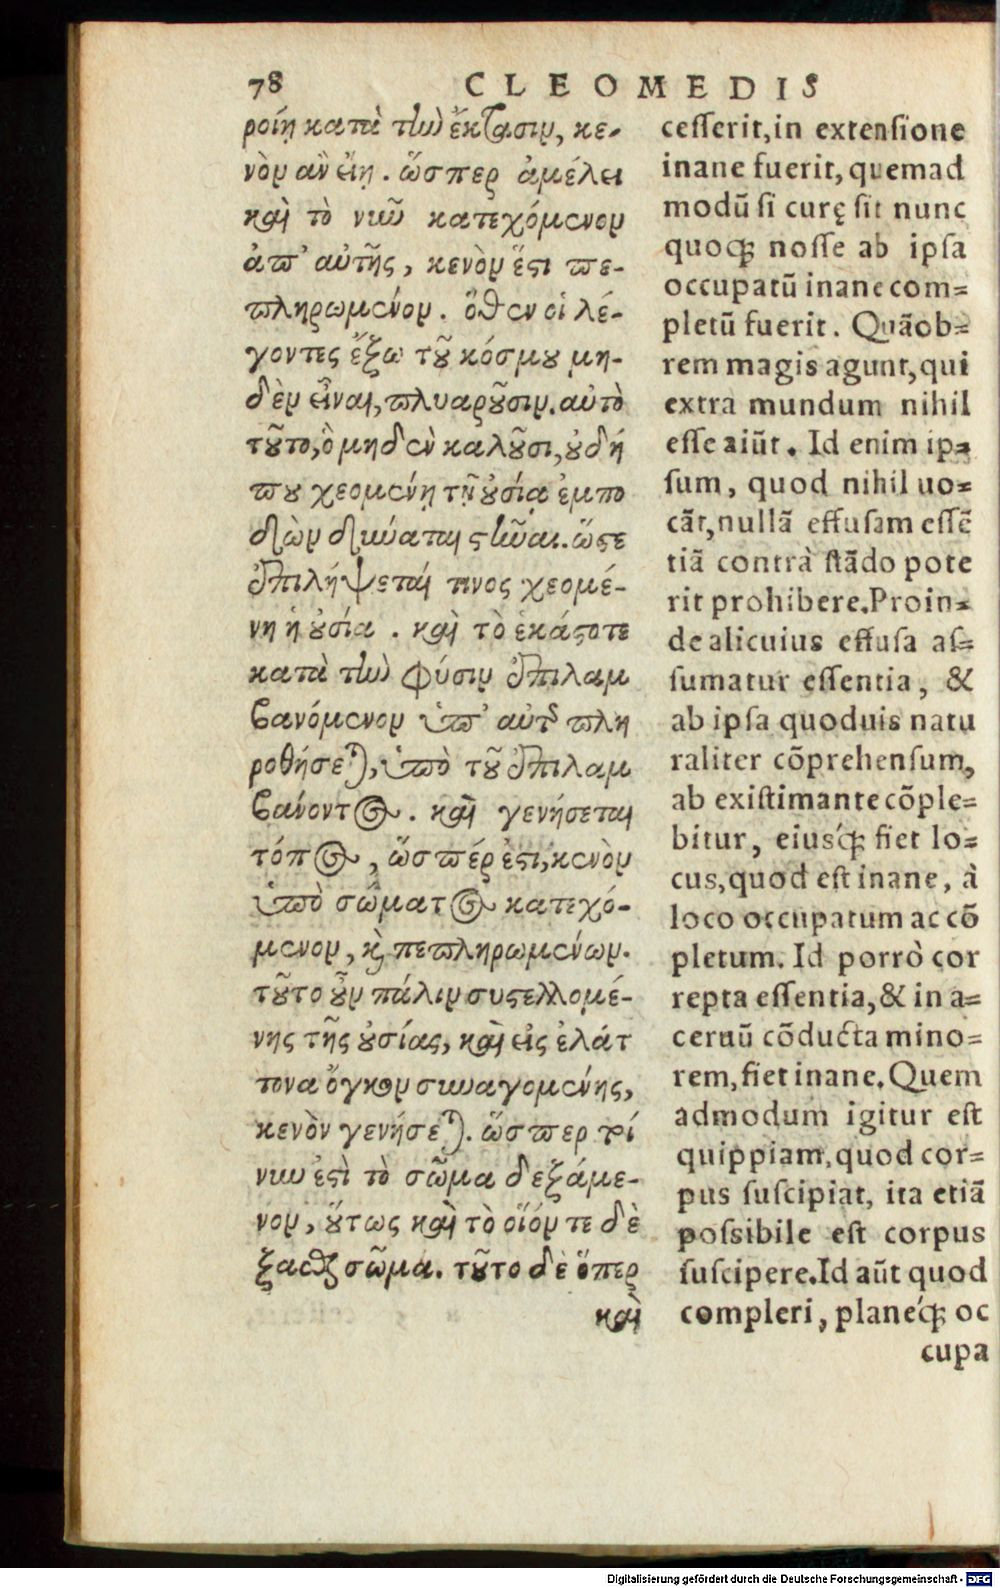 78 CLEOMEDIS
ροίη κατὰ τὴν ἔκτασιν, κε-
νὸν ἂν εἴη. ὥσπερ ἀμέλει
καὶ τὸ νῦν κατεχόμενον
ἀπ' αὐτῆς, κενὸν ἔστι πε-
πληρωμένον. ὅθεν οἱ λέ-
γοντες ἔξω τοῦ κόσμου μη-
δὲν εἶναι, πλυαροῦσιν. αὐτὸ
τοῦτο, ὃ μηδὲν καλοῦσι, οὐδή
που χεομένῃ τῇ οὐσίᾳ ἐμπο
διὼν δύναται στῆναι. ὥστε
ἐπιλήψεταί τινος χεομέ-
νη ἡ οὐσία. καὶ τὸ ἑκάστοτε
κατὰ τὴν φύσιν ἐπιλαμ
βανόμενον ὑπ' αὐτοῦ πλη
ροθήσεται, ὑπὸ τοῦ ἐπιλαμ
βάνοντος. καὶ γενήσεται
τόπος, ὥσπέρ ἐστι, κενὸν
ὑπὸ σώματος κατεχό-
μενον, καὶ πεπληρωμένων.
τοῦτο οὖν πάλιν συστελλομέ-
νης τῆς οὐσίας, καὶ εἰς ἐλάτ
τονα ὄγκον συναγομένης,
κενὸν γενήσεται. ὥσπερ τρί
νυν ἐστὶ τὸ σῶμα δεξάμε-
νον, οὕτως καὶ τὸ οἷόν τε δὲ
ξασθαι σῶμα. τοῦτο δὲ ὅπερ
καὶ
cesserit, in extensione
inane fuerit, quemad
modū si curę sit nunc
quoq; nosse ab ipsa
occupatū inane com=
pletū fuerit. Quāob=
rem magis agunt, qui
extra mundum nihil
esse aiūt. Id enim ip=
sum, quod nihil uo=
cāt, nullā effusam essē
tiā contrà stādo pote
rit prohibere. Proin=
de alicuius effusa as=
sumatur essentia, &
ab ipsa quoduis natu
raliter cōprehensum,
ab existimante cōple=
bitur, eiusq́; fiet lo=
cus, quod est inane, à
loco occupatum ac cō
pletum. Id porrò cor
repta essentia, & in a=
ceruū cōducta mino=
rem, fiet inane. Quem
admodum igitur est
quippiam, quod cor=
pus suscipiat, ita etiā
possibile est corpus
suscipere. Id aūt quod
compleri, planeq́; oc
cupa
Digitalisierung gefördert durch die Deutsche Forschungsgemeinschaft - DFG